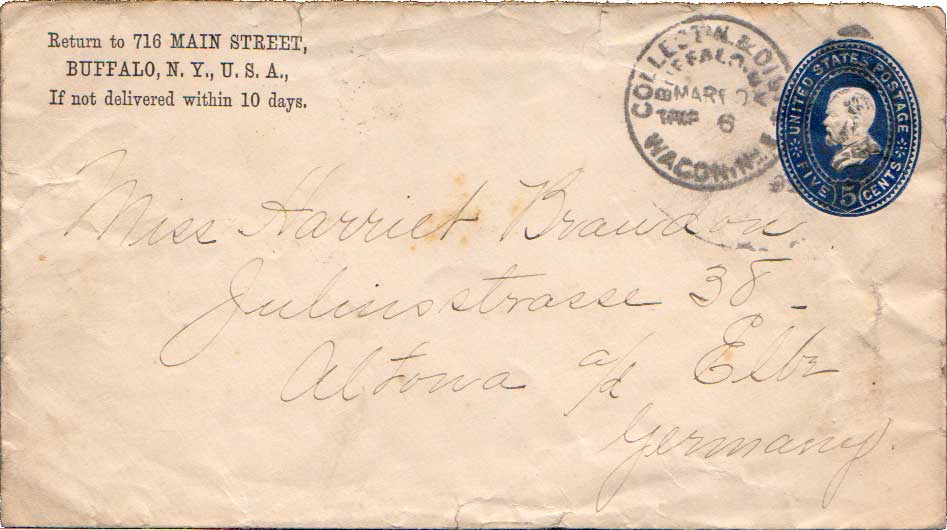 Return to 716 MAIN STREET,
BUFFALO, N. Y., U. S. A.,
If not delivered within 10 days.
COLLECT'N. & DIS
BUFFALO
MAR
TRIP 6
WAGON No.
UNITED STATES POSTAGE
FIVE 5 CENTS
Miss Harriet Brandon
Juliusstrasse 38
Altona a/d Elbe
Germany.